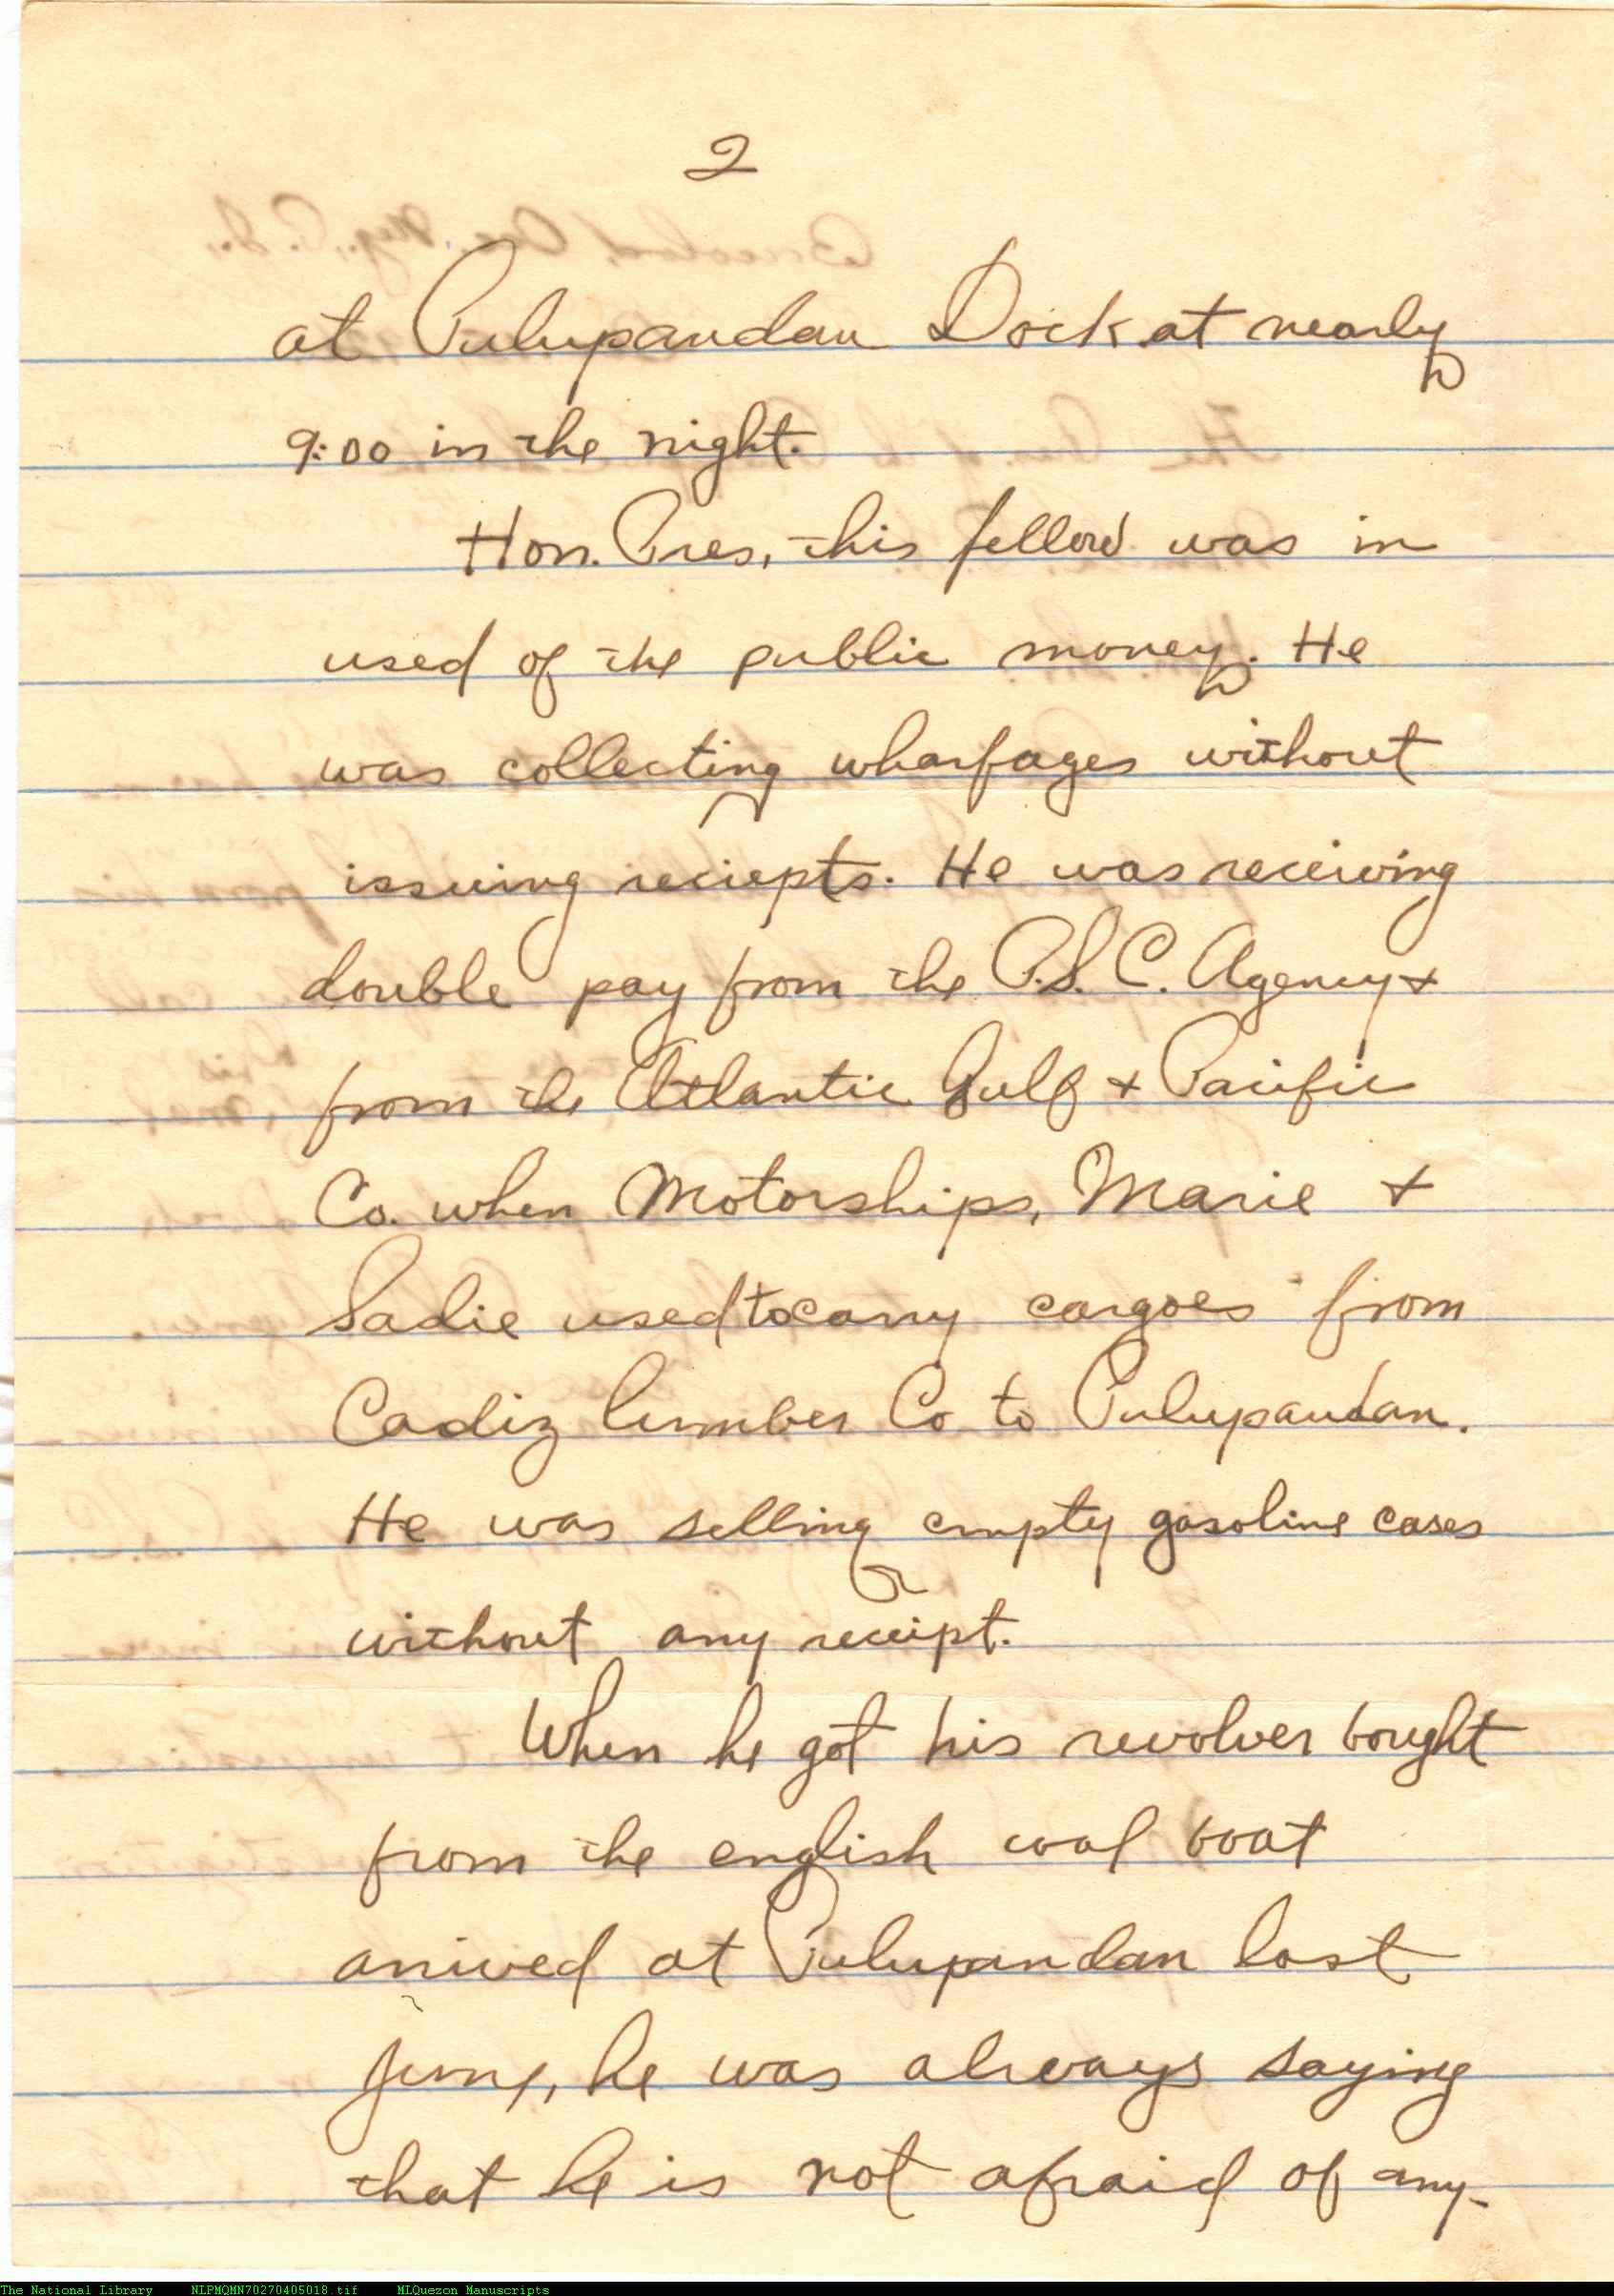 2
at Pulupandan Dock at nearly
9:00 in the night.
Hon. Pres, this fellow was in
used of the public money. He
was collecting wharfages without
issuing reciepts. He was receiving
double pay from the P.S.C. Agency +
from the Atlantic Gulf + Pacific
Co. when Motorships, Marie +
Sadie used to carry cargoes from
Cadiz lumber Co to Pulupandan.
He was selling empty gasoline cases
without any receipt.
When he got his revolver bought
from the english coal boat
arrived at Pulupandan last
June, he was always saying
that he is not afraid of any-
The National Library NLPMQMN70270405018.tif MLQuezon Manuscripts